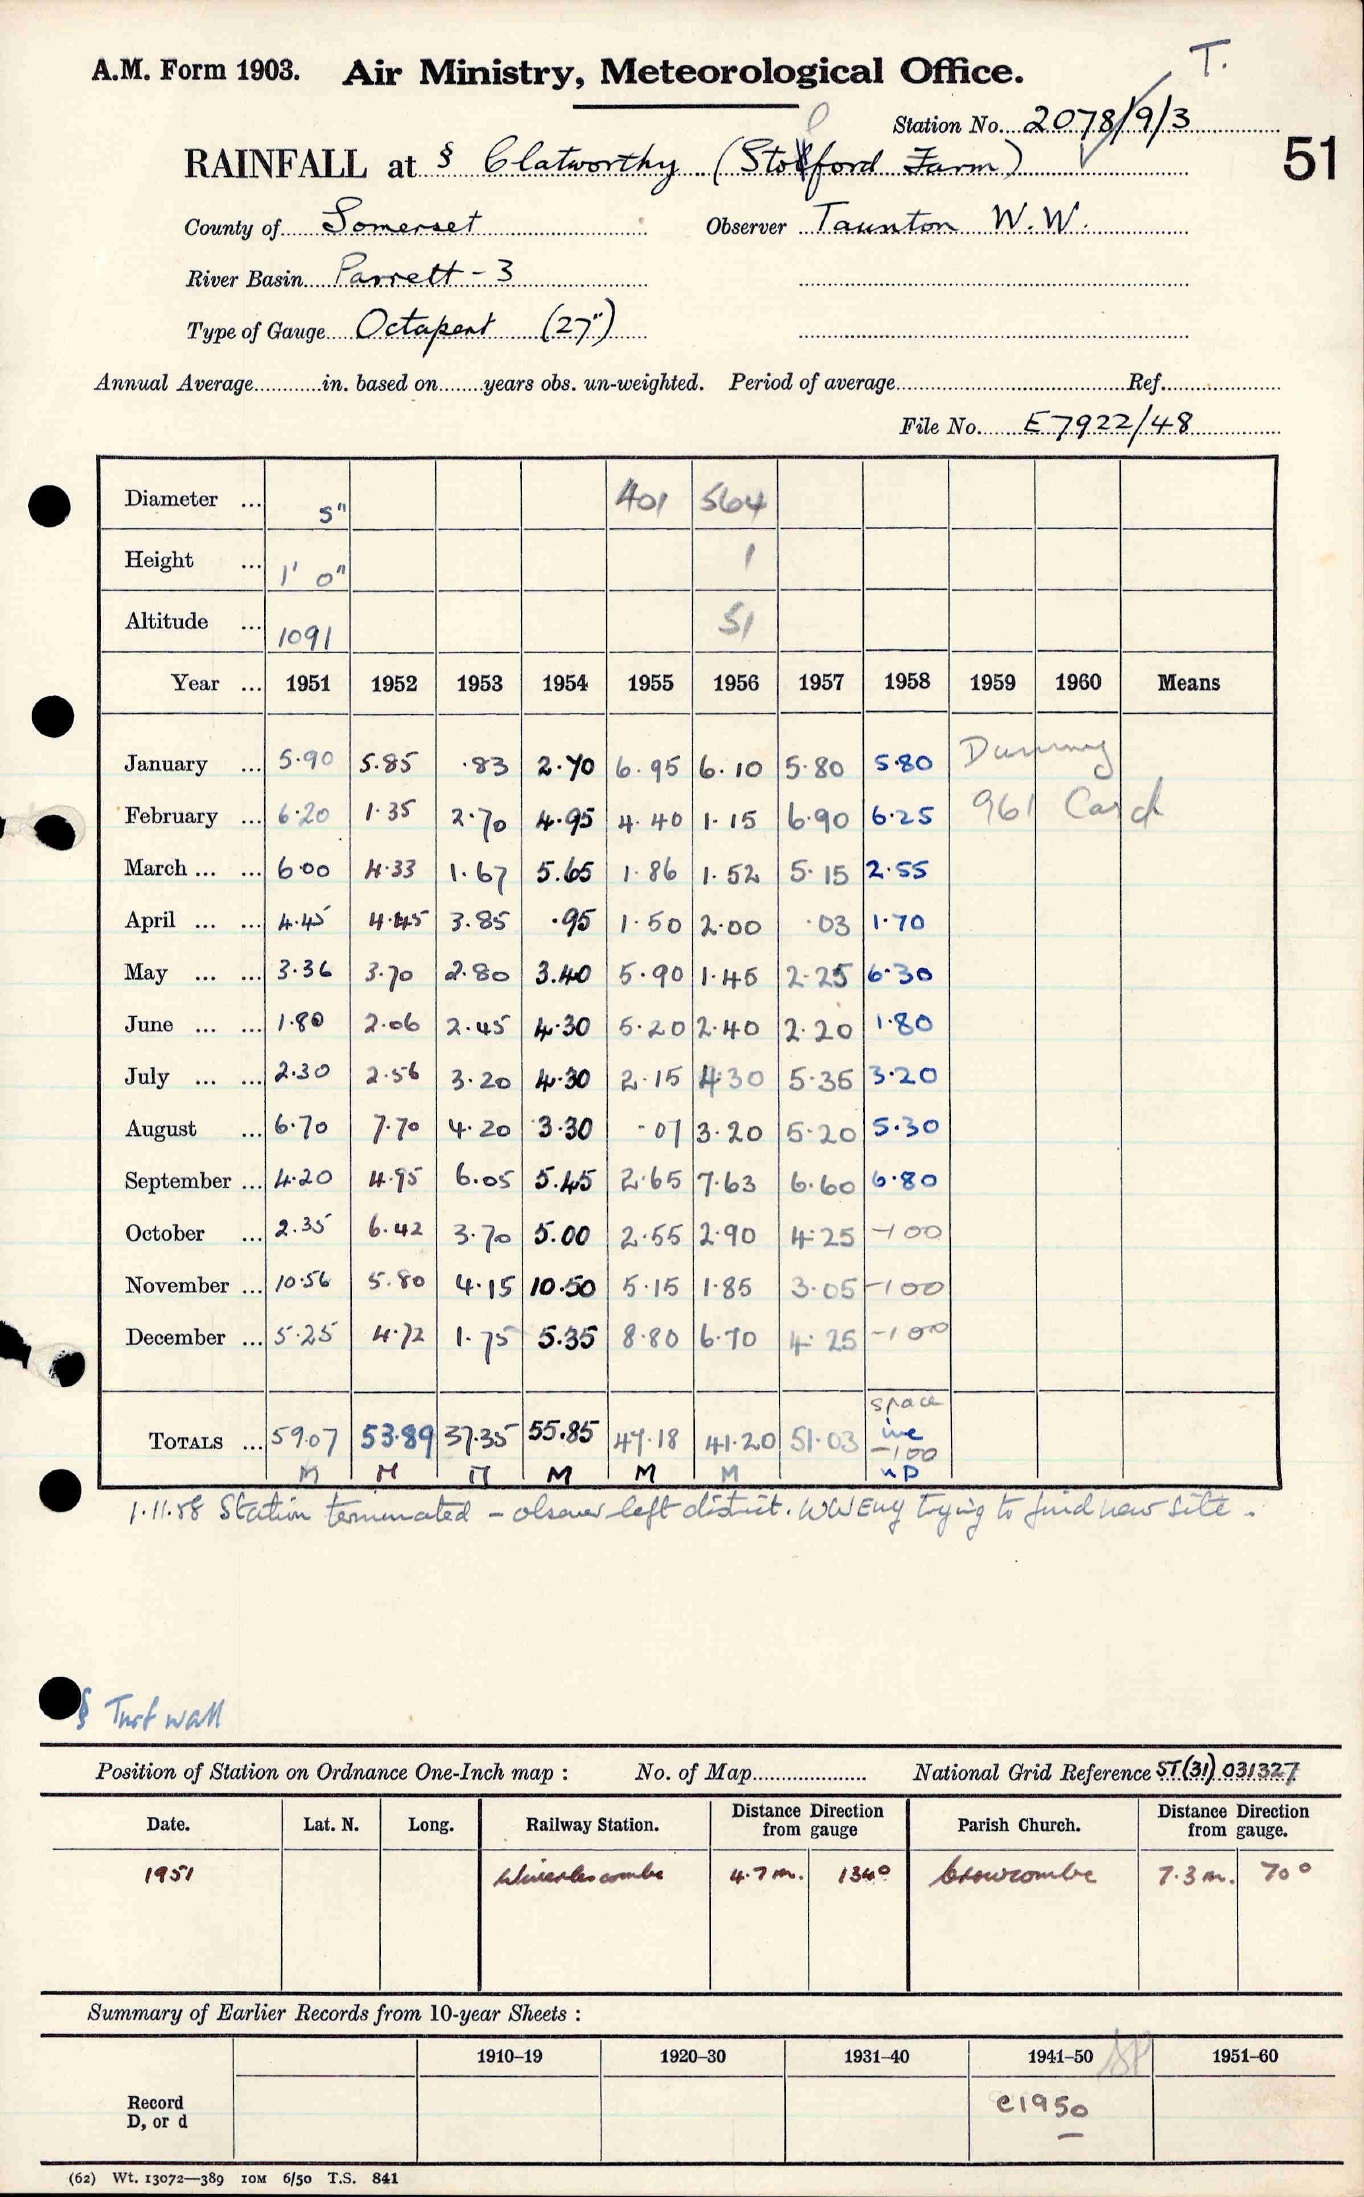 T.
A.M. Form 1903. Air Ministry, Meteorological Office.
Station No. 2078/9/3
51
RAINFALL at § Clatworthy (Stolford Farm)
County of Somerset Observer Taunton W.W.
River Basin Parrett - 3
Type of Gauge Octapent (27")
Annual Average in. based on years obs. un-weighted. Period of average Ref.
File No. E7922/48
Diameter ... 5" 401 564
Height ... 1' 0" 1
Altitude ... 1091 51
Year ... 1951 1952 1953 1954 1955 1956 1957 1958 1959 1960 Means
January ... 5.90 5.85 .83 2.70 6.95 6.10 5.80 5.80 Dummy
February ... 6.20 1.35 2.70 4.95 4.40 1.15 6.90 6.25 961 Card
March ... ... 6.00 4.33 1.67 5.65 1.86 1.52 5.15 2.55
April ... ... 4.45 4.45 3.85 .95 1.50 2.00 .03 1.70
May ... ... 3.36 3.70 2.80 3.40 5.90 1.45 2.25 6.30
June ... ... 1.80 2.06 2.45 4.30 5.20 2.40 2.20 1.80
July ... ... 2.30 2.56 3.20 4.30 2.15 4.30 5.35 3.20
August ... 6.70 7.70 4.20 3.30 .07 3.20 5.20 5.30
September ... 4.20 4.95 6.05 5.45 2.65 7.63 6.60 6.80
October ... 2.35 6.42 3.70 5.00 2.55 2.90 4.25 -100
November ... 10.56 5.80 4.15 10.50 5.15 1.85 3.05 -100
December ... 5.25 4.72 1.75 5.35 8.80 6.70 4.25 -100
space
TOTALS ... 59.07 53.89 37.35 55.85 47.18 41.20 51.03 inc
-100
M M M M M M up
1.11.58 Station terminated - observer left district. WW Eng trying to find new site.
§ Turf wall
Position of Station on Ordnance One-Inch map : No. of Map National Grid Reference ST(31) 031327
Date. Lat. N. Long. Railway Station. Distance Direction from gauge Parish Church. Distance Direction from gauge.
1951 Wiveliscombe 4.7 m. 134° Crowcombe 7.3 m. 70°
Summary of Earlier Records from 10-year Sheets :
1910–19 1920–30 1931–40 1941–50 1951–60
Record
D, or d
c1950
(62) Wt. 13072—389 10M 6/50 T.S. 841